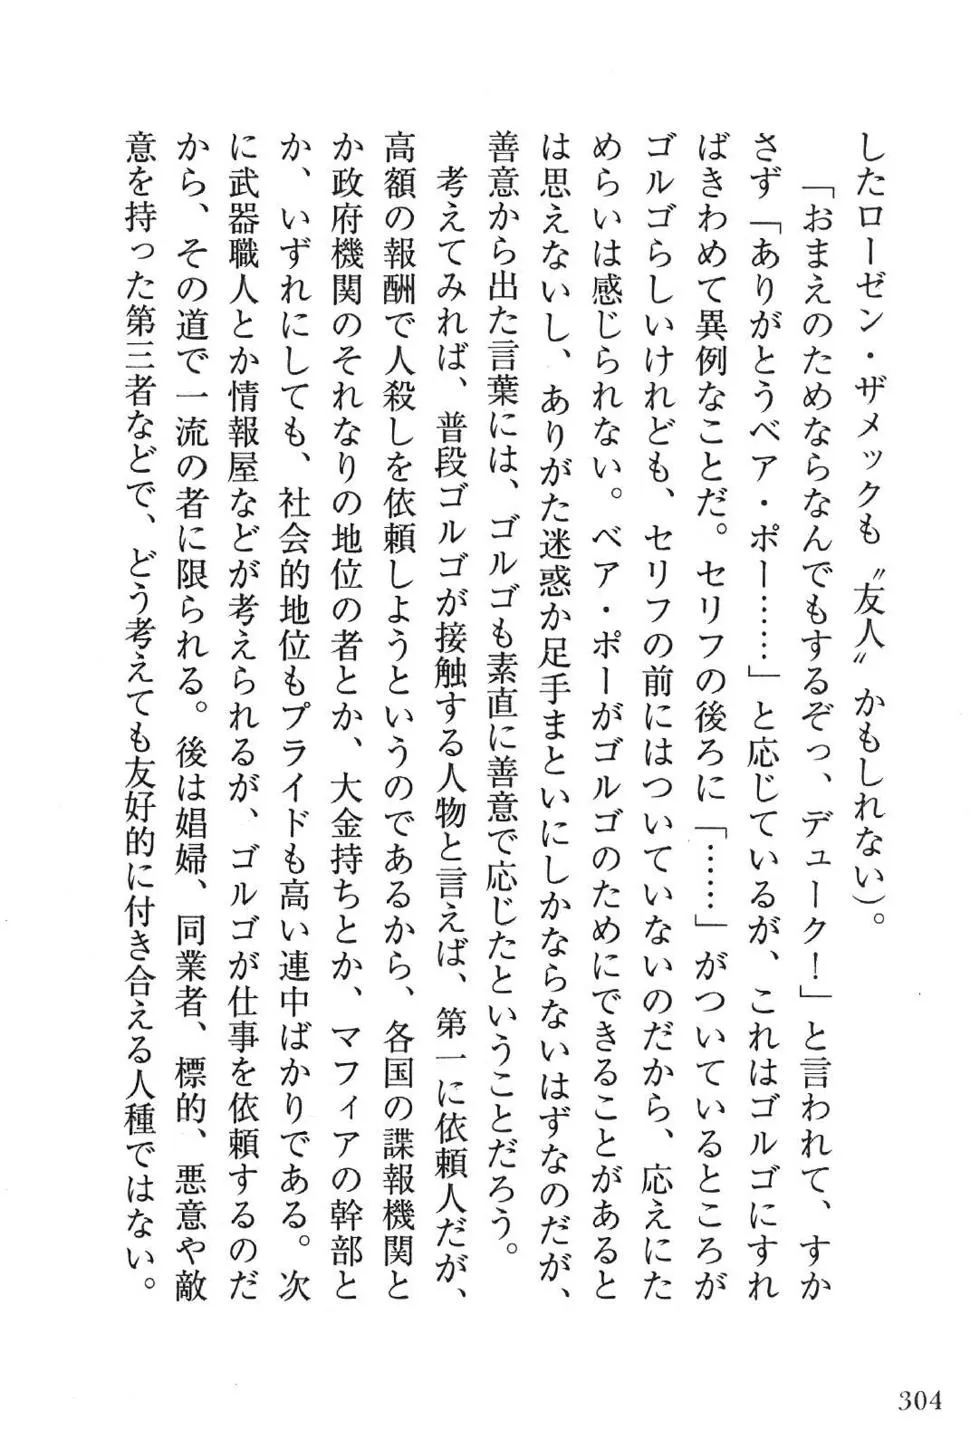 したローゼン・ザメックも〝友人〟かもしれない)。
「おまえのためならなんでもするぞっ、デューク!」と言われて、すか
さず「ありがとうベア・ポー……」と応じているが、これはゴルゴにすれ
ばきわめて異例なことだ。セリフの後ろに「……」がついているところが
ゴルゴらしいけれども、セリフの前にはついていないのだから、応えにた
めらいは感じられない。ベア・ポーがゴルゴのためにできることがあると
は思えないし、ありがた迷惑か足手まといにしかならないはずなのだが、
善意から出た言葉には、ゴルゴも素直に善意で応じたということだろう。
考えてみれば、普段ゴルゴが接触する人物と言えば、第一に依頼人だが、
高額の報酬で人殺しを依頼しようというのであるから、各国の諜報機関と
か政府機関のそれなりの地位の者とか、大金持ちとか、マフィアの幹部と
か、いずれにしても、社会的地位もプライドも高い連中ばかりである。次
に武器職人とか情報屋などが考えられるが、ゴルゴが仕事を依頼するのだ
から、その道で一流の者に限られる。後は娼婦、同業者、標的、悪意や敵
意を持った第三者などで、どう考えても友好的に付き合える人種ではない。
304